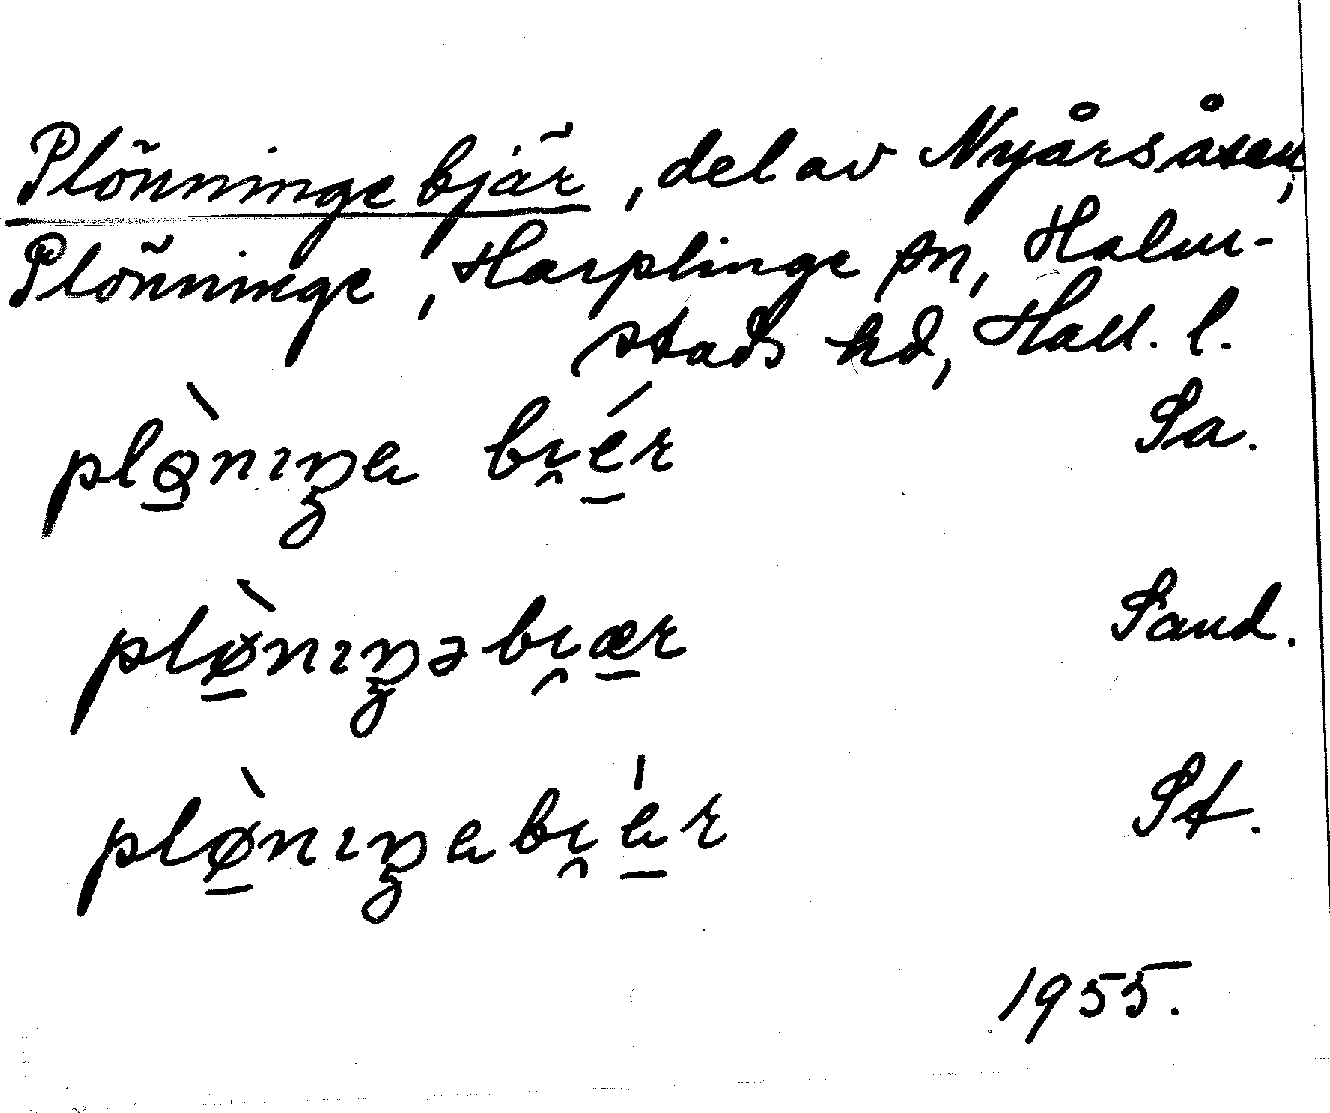 Plönninge bjär, del av Nyårsåsen,
Plönninge, Harplinge sn, Halm-
stads hd, Hall. l.
plø̱̀nıŋa bı̯é̱r Sa.
plø̱̀nıŋəbı̯æ̱r Sand.
plø̱̀nıŋabı̯á̱r St.
1955.